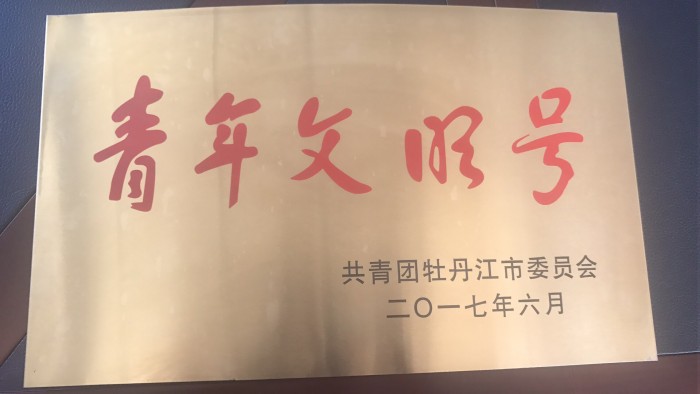 青年文明号
共青团牡丹江市委员会
二〇一七年六月